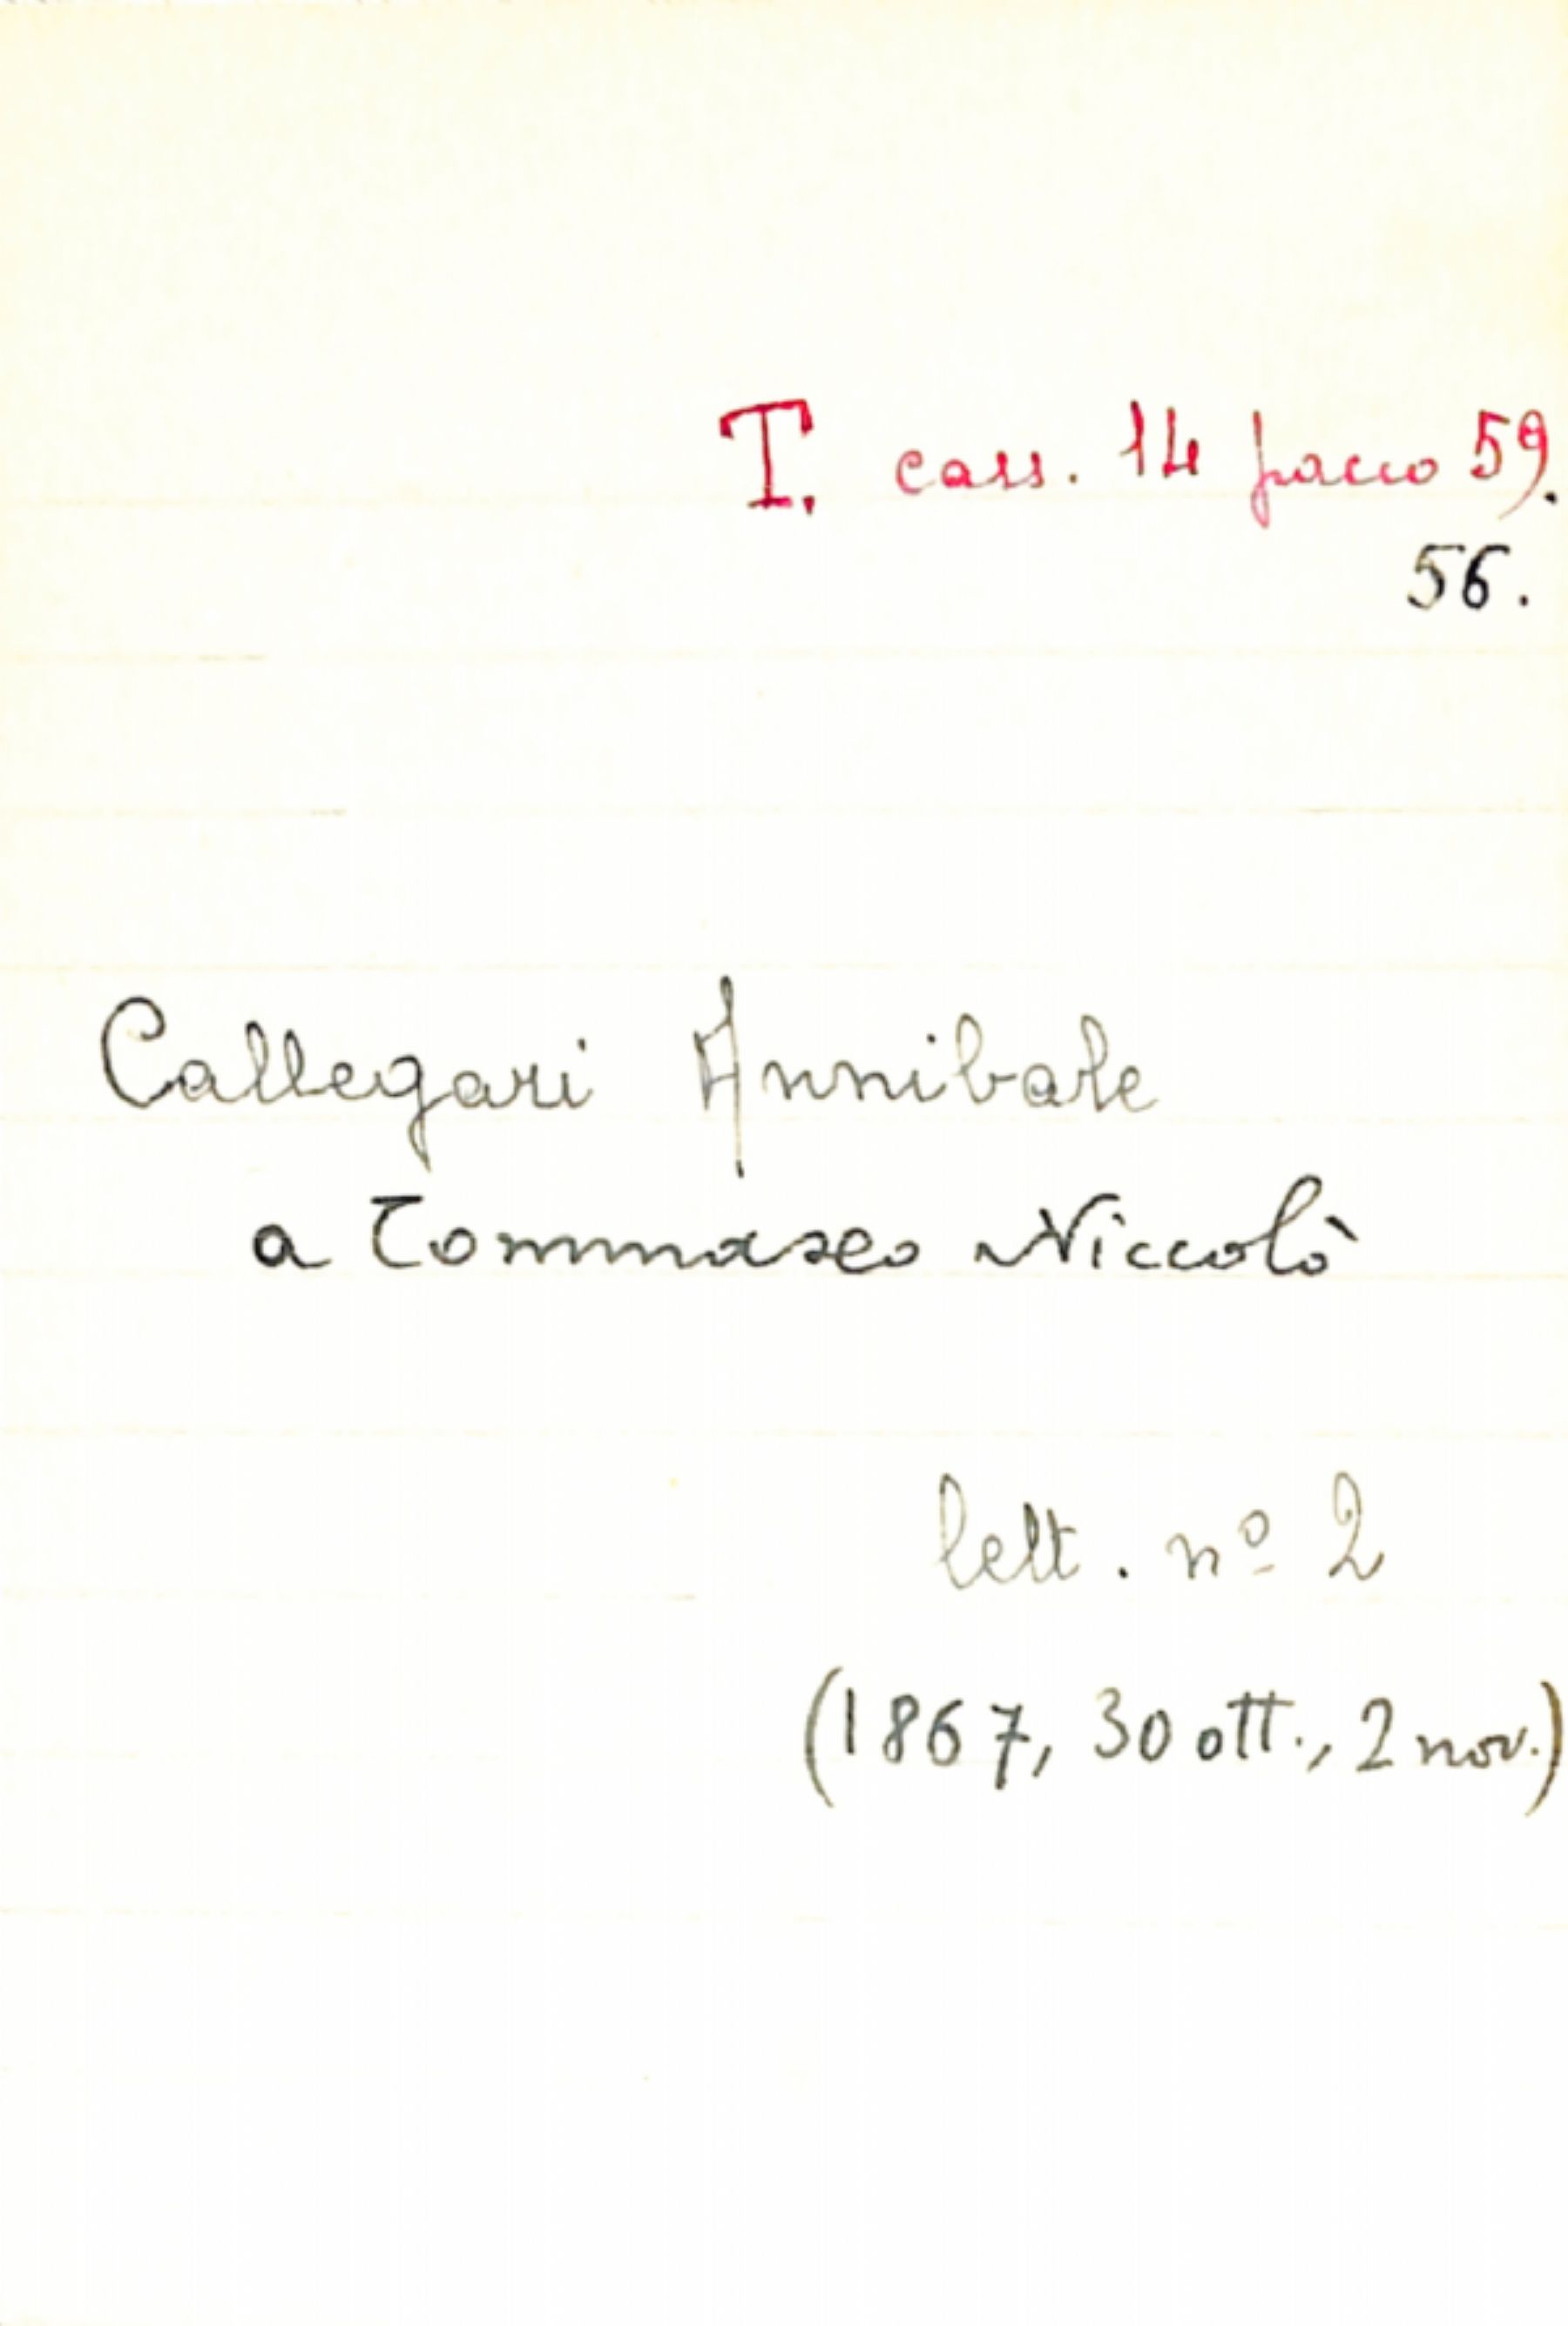 T. cass. 14 pacco 59.
56.
Callegari Annibale
a Tommaseo Niccolò
lett. nº 2
(1867, 30 ott., 2 nov.)